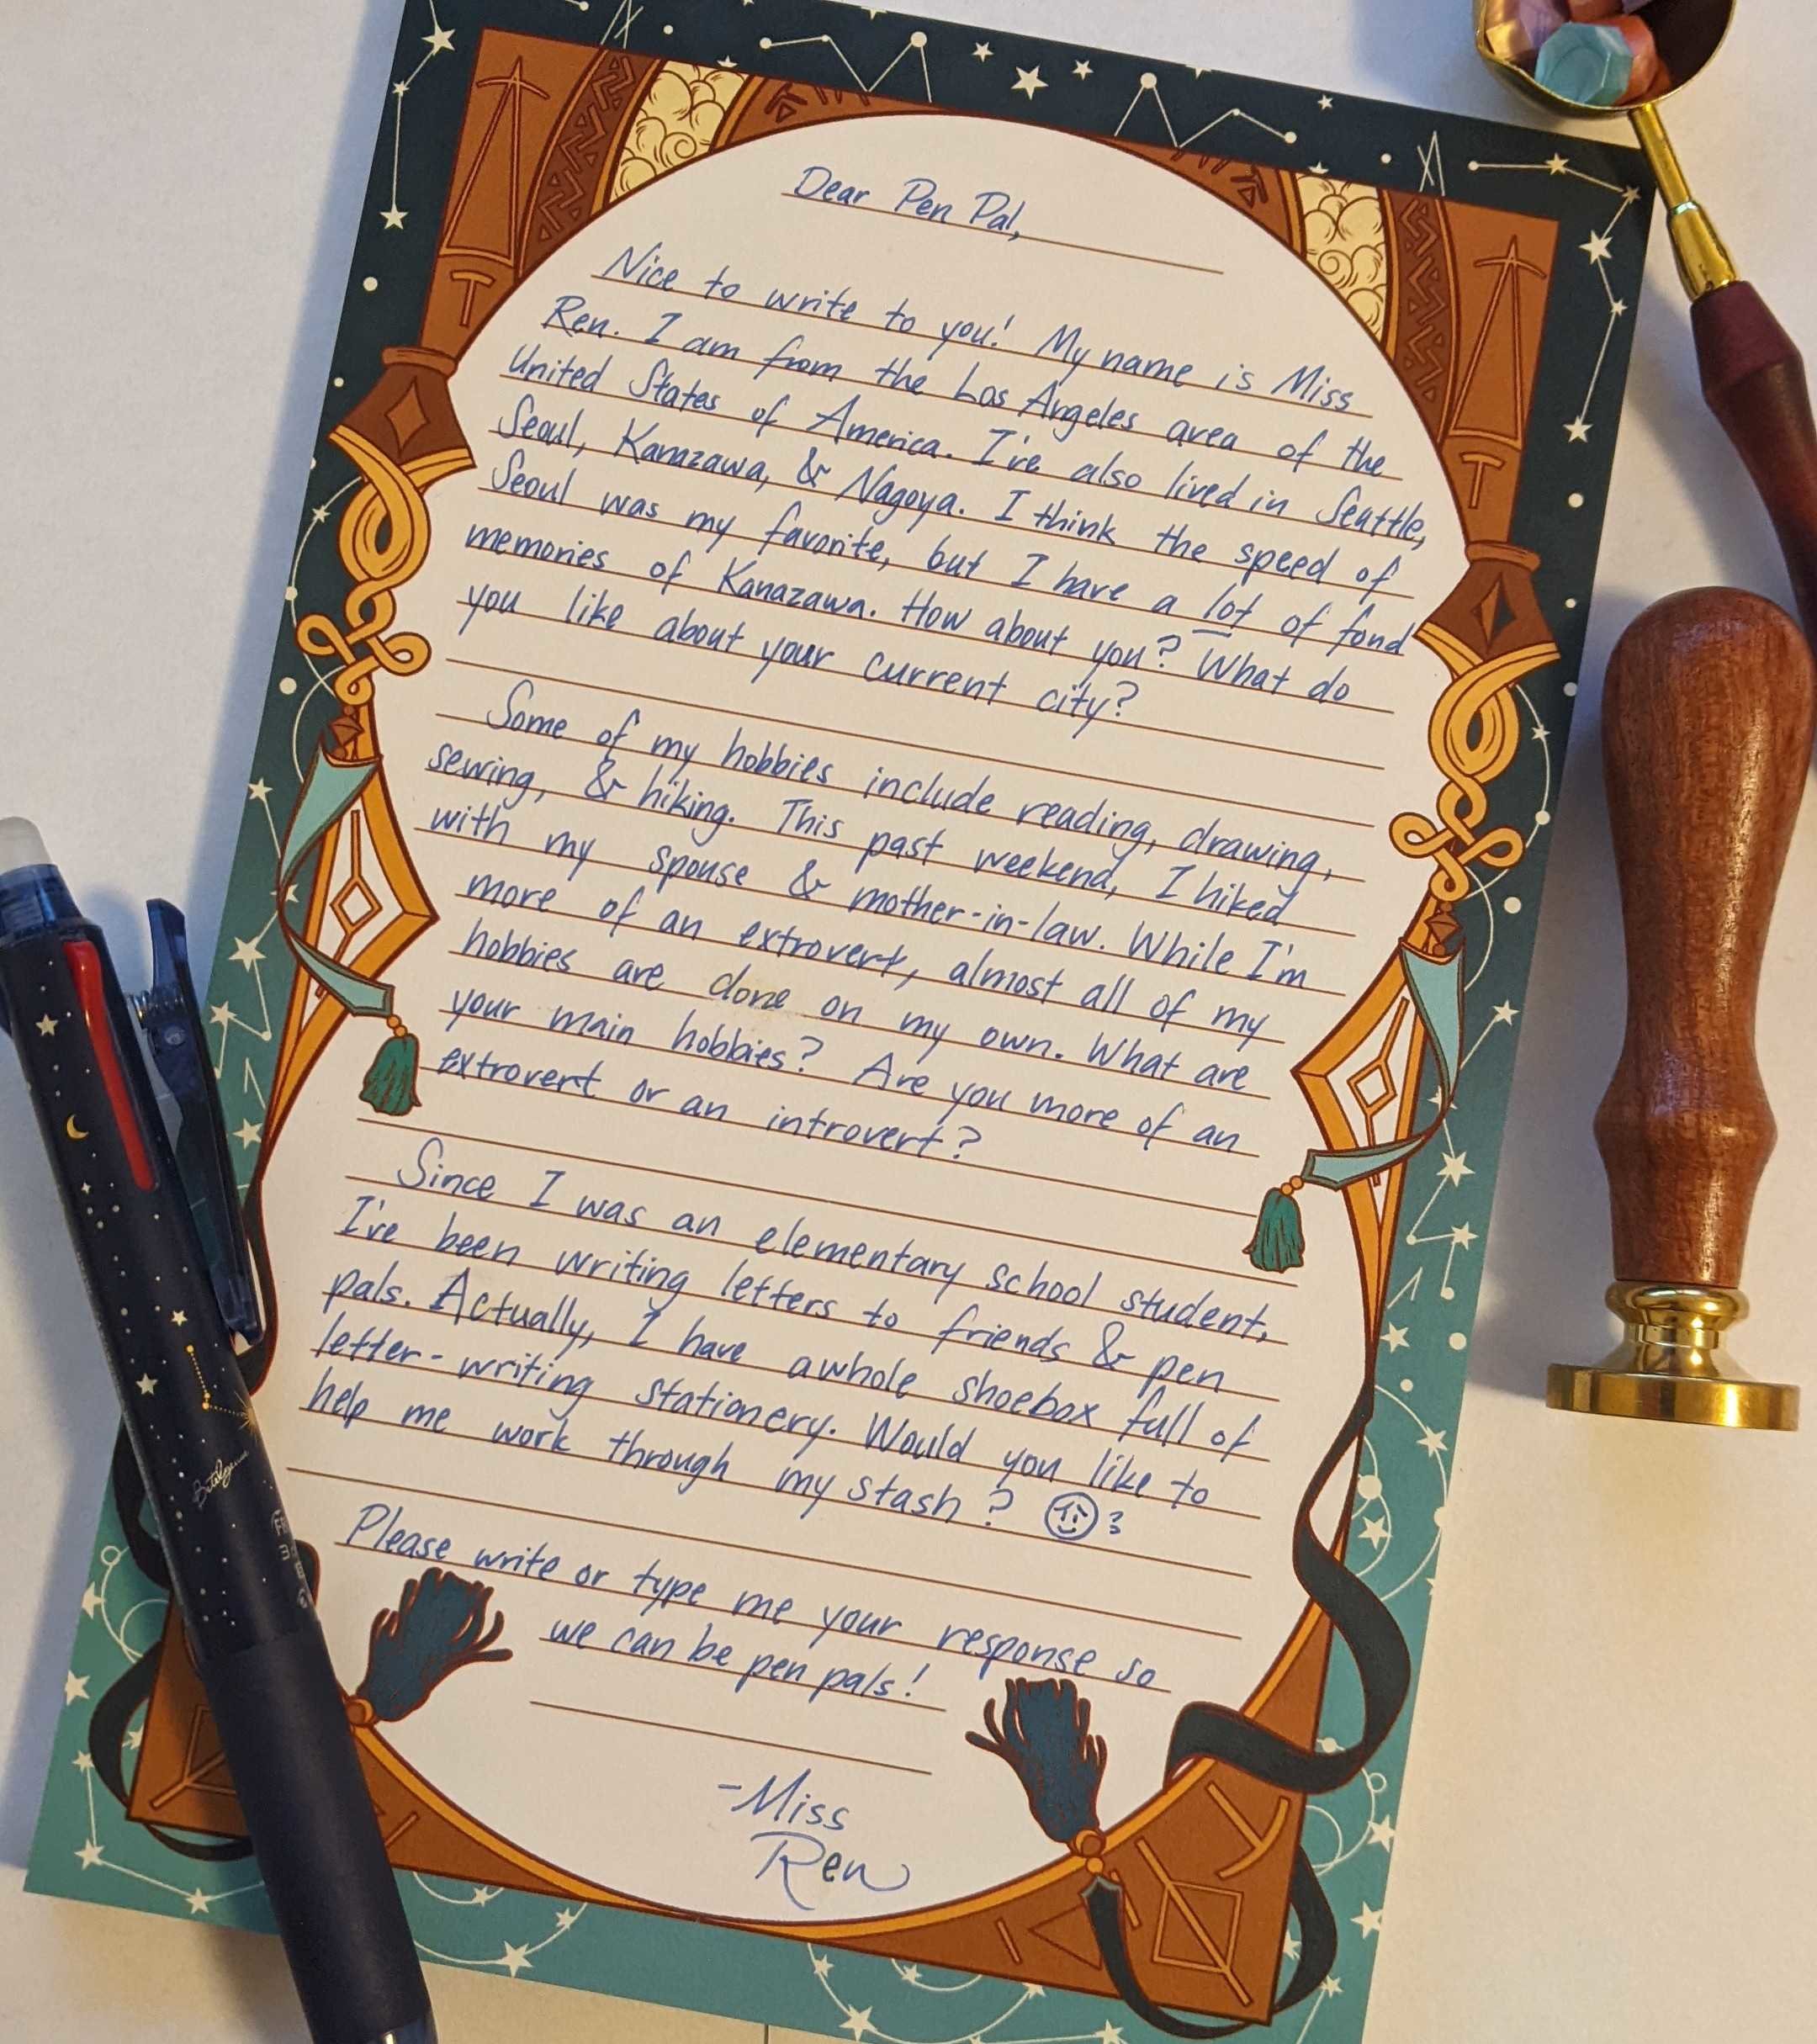 Dear Pen Pal,
Nice to write to you! My name is Miss
Ren. I am from the Los Angeles area of the
United States of America. I've also lived in Seattle,
Seoul, Kanazawa, & Nagoya. I think the speed of
Seoul was my favorite, but I have a lot of fond
memories of Kanazawa. How about you? What do
you like about your current city?
Some of my hobbies include reading, drawing,
sewing, & hiking. This past weekend, I hiked
with my spouse & mother-in-law. While I'm
more of an extrovert, almost all of my
hobbies are done on my own. What are
your main hobbies? Are you more of an
extrovert or an introvert?
Since I was an elementary school student,
I've been writing letters to friends & pen
pals. Actually, I have a whole shoebox full of
letter-writing stationery. Would you like to
help me work through my stash?
Please write or type me your response so
we can be pen pals!
-Miss
Ren
Betelgeuse